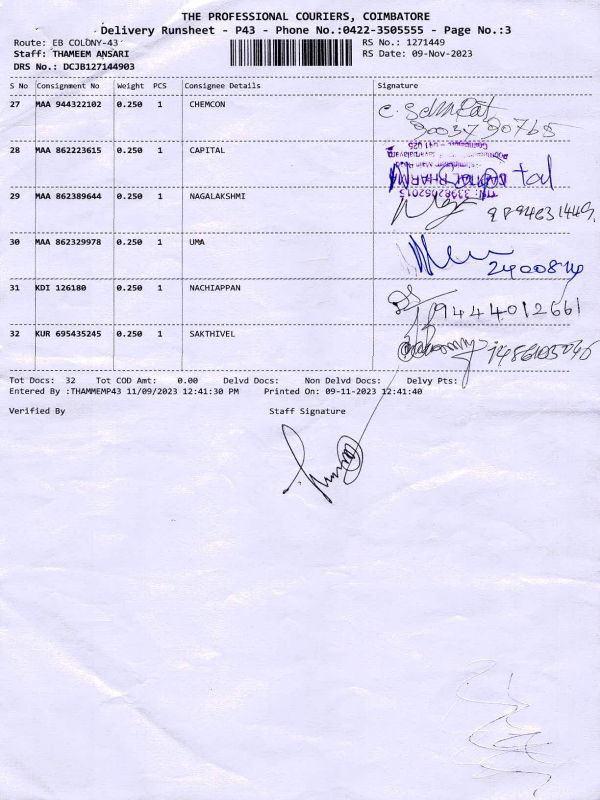 THE PROFESSIONAL COURIERS, COIMBATORE
Delivery Runsheet - P43 - Phone No.:0422-3505555 - Page No.:3
Route: EB COLONY-43 RS No.: 1271449
Staff: THAMEEM ANSARI RS Date: 09-Nov-2023
DRS No.: DCJB127144903
S No Consignment No Weight PCS Consignee Details Signature
27 MAA 944322102 0.250 1 CHEMCON
28 MAA 862223615 0.250 1 CAPITAL
29 MAA 862389644 0.250 1 NAGALAKSHMI
30 MAA 862329978 0.250 1 UMA
31 KDI 126180 0.250 1 NACHIAPPAN
9444012661
32 KUR 695435245 0.250 1 SAKTHIVEL
Tot Docs: 32 Tot COD Amt: 0.00 Delvd Docs: Non Delvd Docs: Delvy Pts:
Entered By :THAMMEMP43 11/09/2023 12:41:30 PM Printed On: 09-11-2023 12:41:40
Verified By Staff Signature